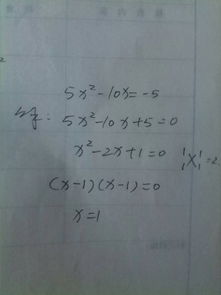 5x²-10x=-5
解: 5x²-10x+5=0
x²-2x+1=0
(x-1)(x-1)=0
x=1